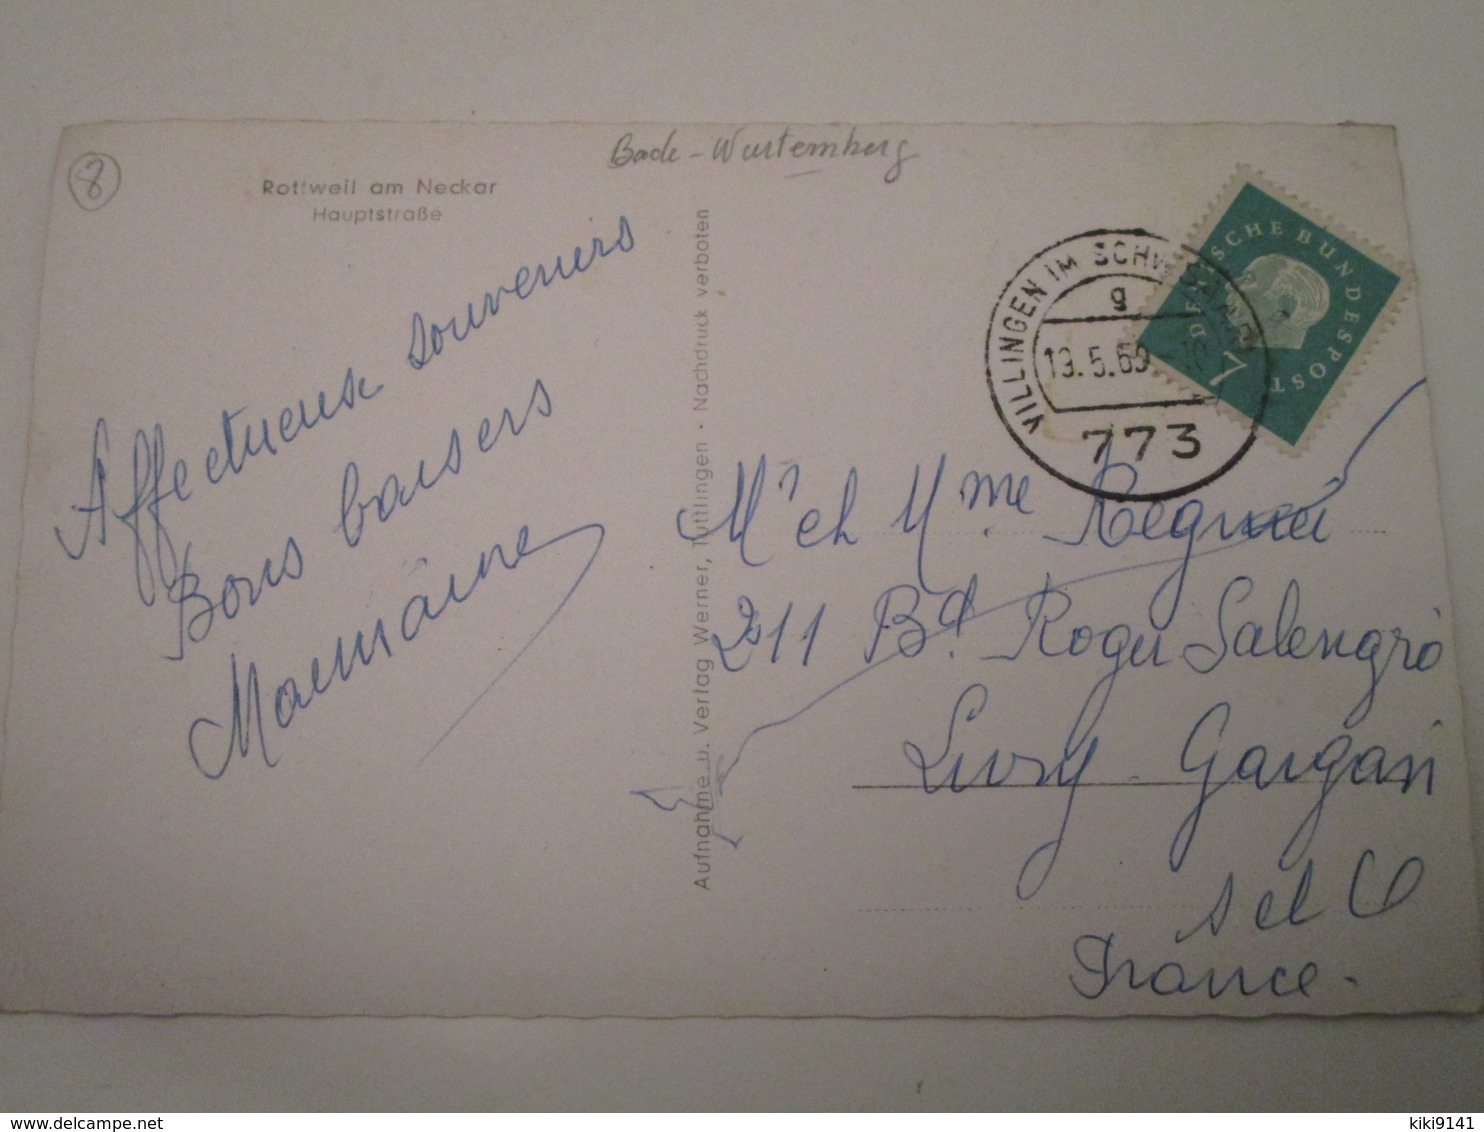 8
Bade-Wurtemberg
Rottweil am Neckar
Hauptstraße
Affectueux souvenirs
Bons baisers
Aufnahme u. Verlag Werner, Tuttlingen · Nachdruck verboten
DEUTSCHE BUNDESPOST
7
VILLINGEN IM SCHWARZWALD
g
19.5.60
773
Mr et Mme
211 Bd. Roger Salengro
Livry-Gargan
S et O
France.
delcampe.net
kiki9141